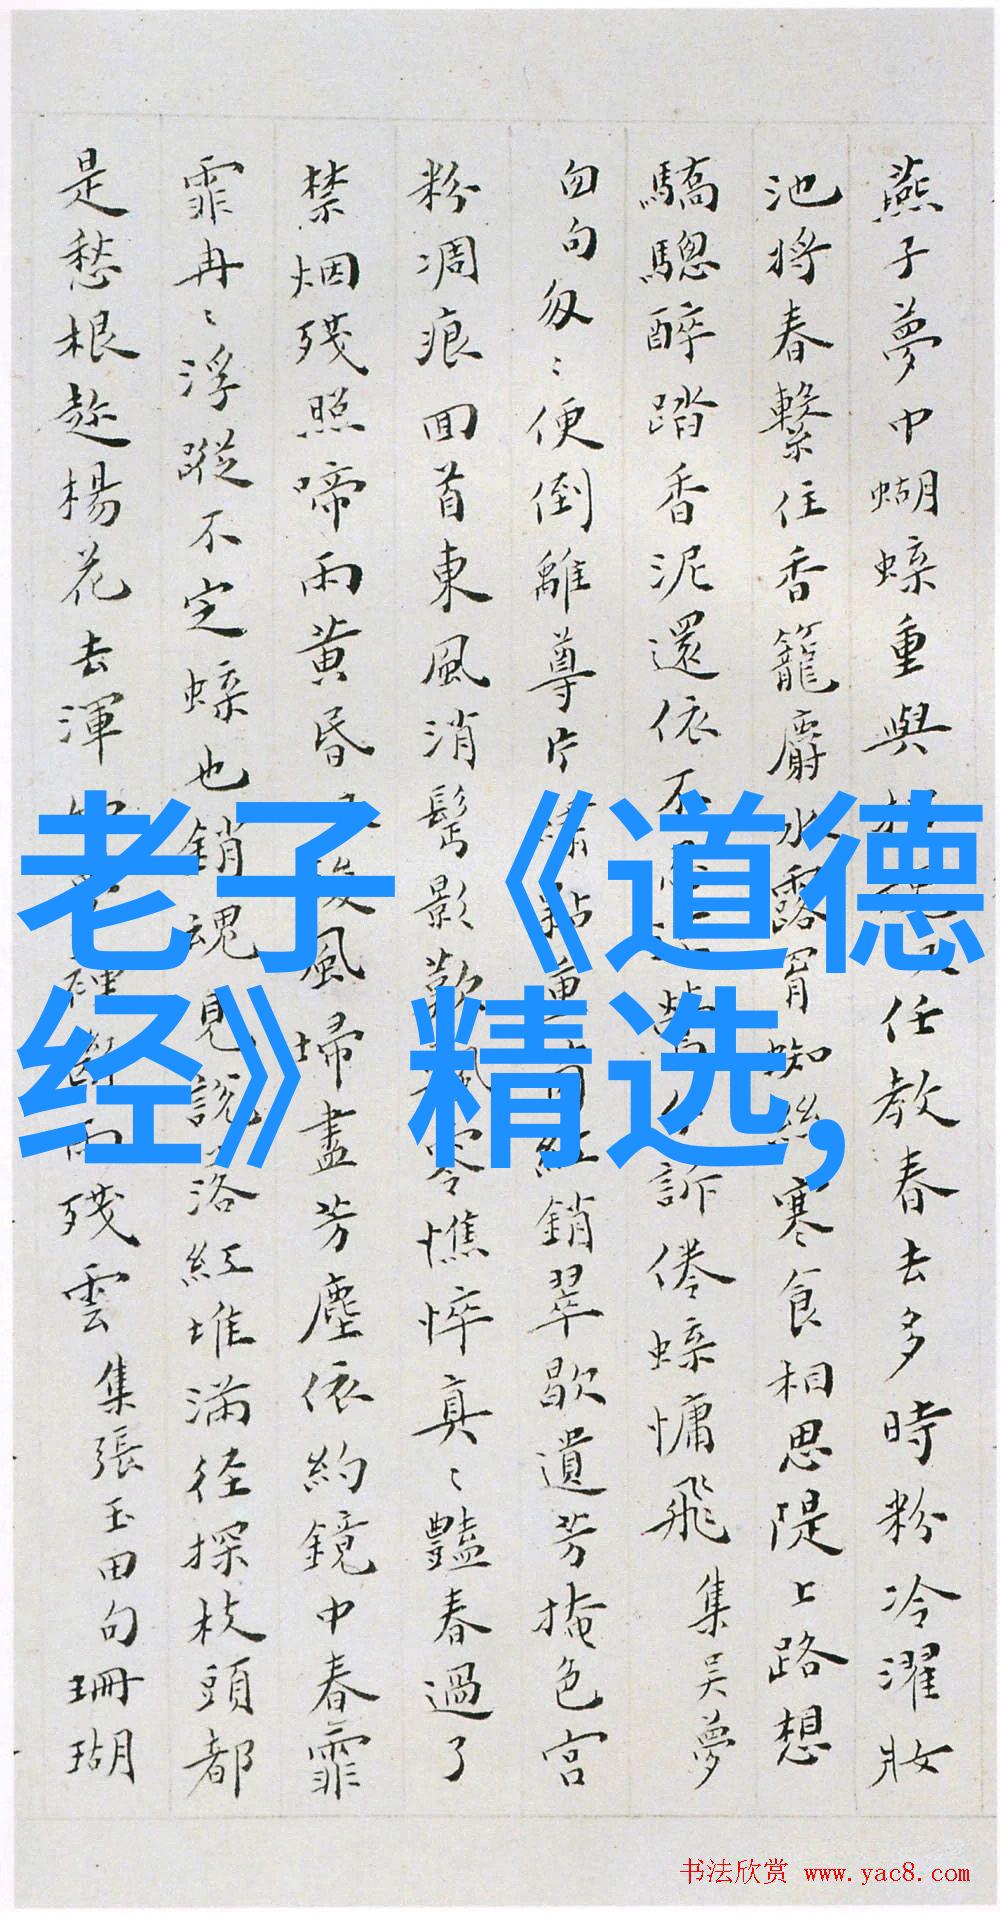 燕子夢中蝴蝶重與任教春去多時粉冷濯妝
池将春繫住香籠麝水露罥蜘絲寒食相思隄上路想
驕驄醉踏香泥還依不訴倦蝶慵飛 集吴夢
句匆〻便倒離尊片銷翠歇遺芳掩色宫
粉凋痕回首東風消鬢影歎零憔悴真〻豔春過了
禁烟殘照啼雨黄昏風掃盡芳塵依約鏡中春霏
霏冉〻浮蹤不定蝶也銷魂見說落紅堆滿徑探枝頭都
是愁根趂楊花去渾斷雨殘雲 集張玉田句珊瑚
老子《道德
经》精选，
书法欣赏 www.yac8.com